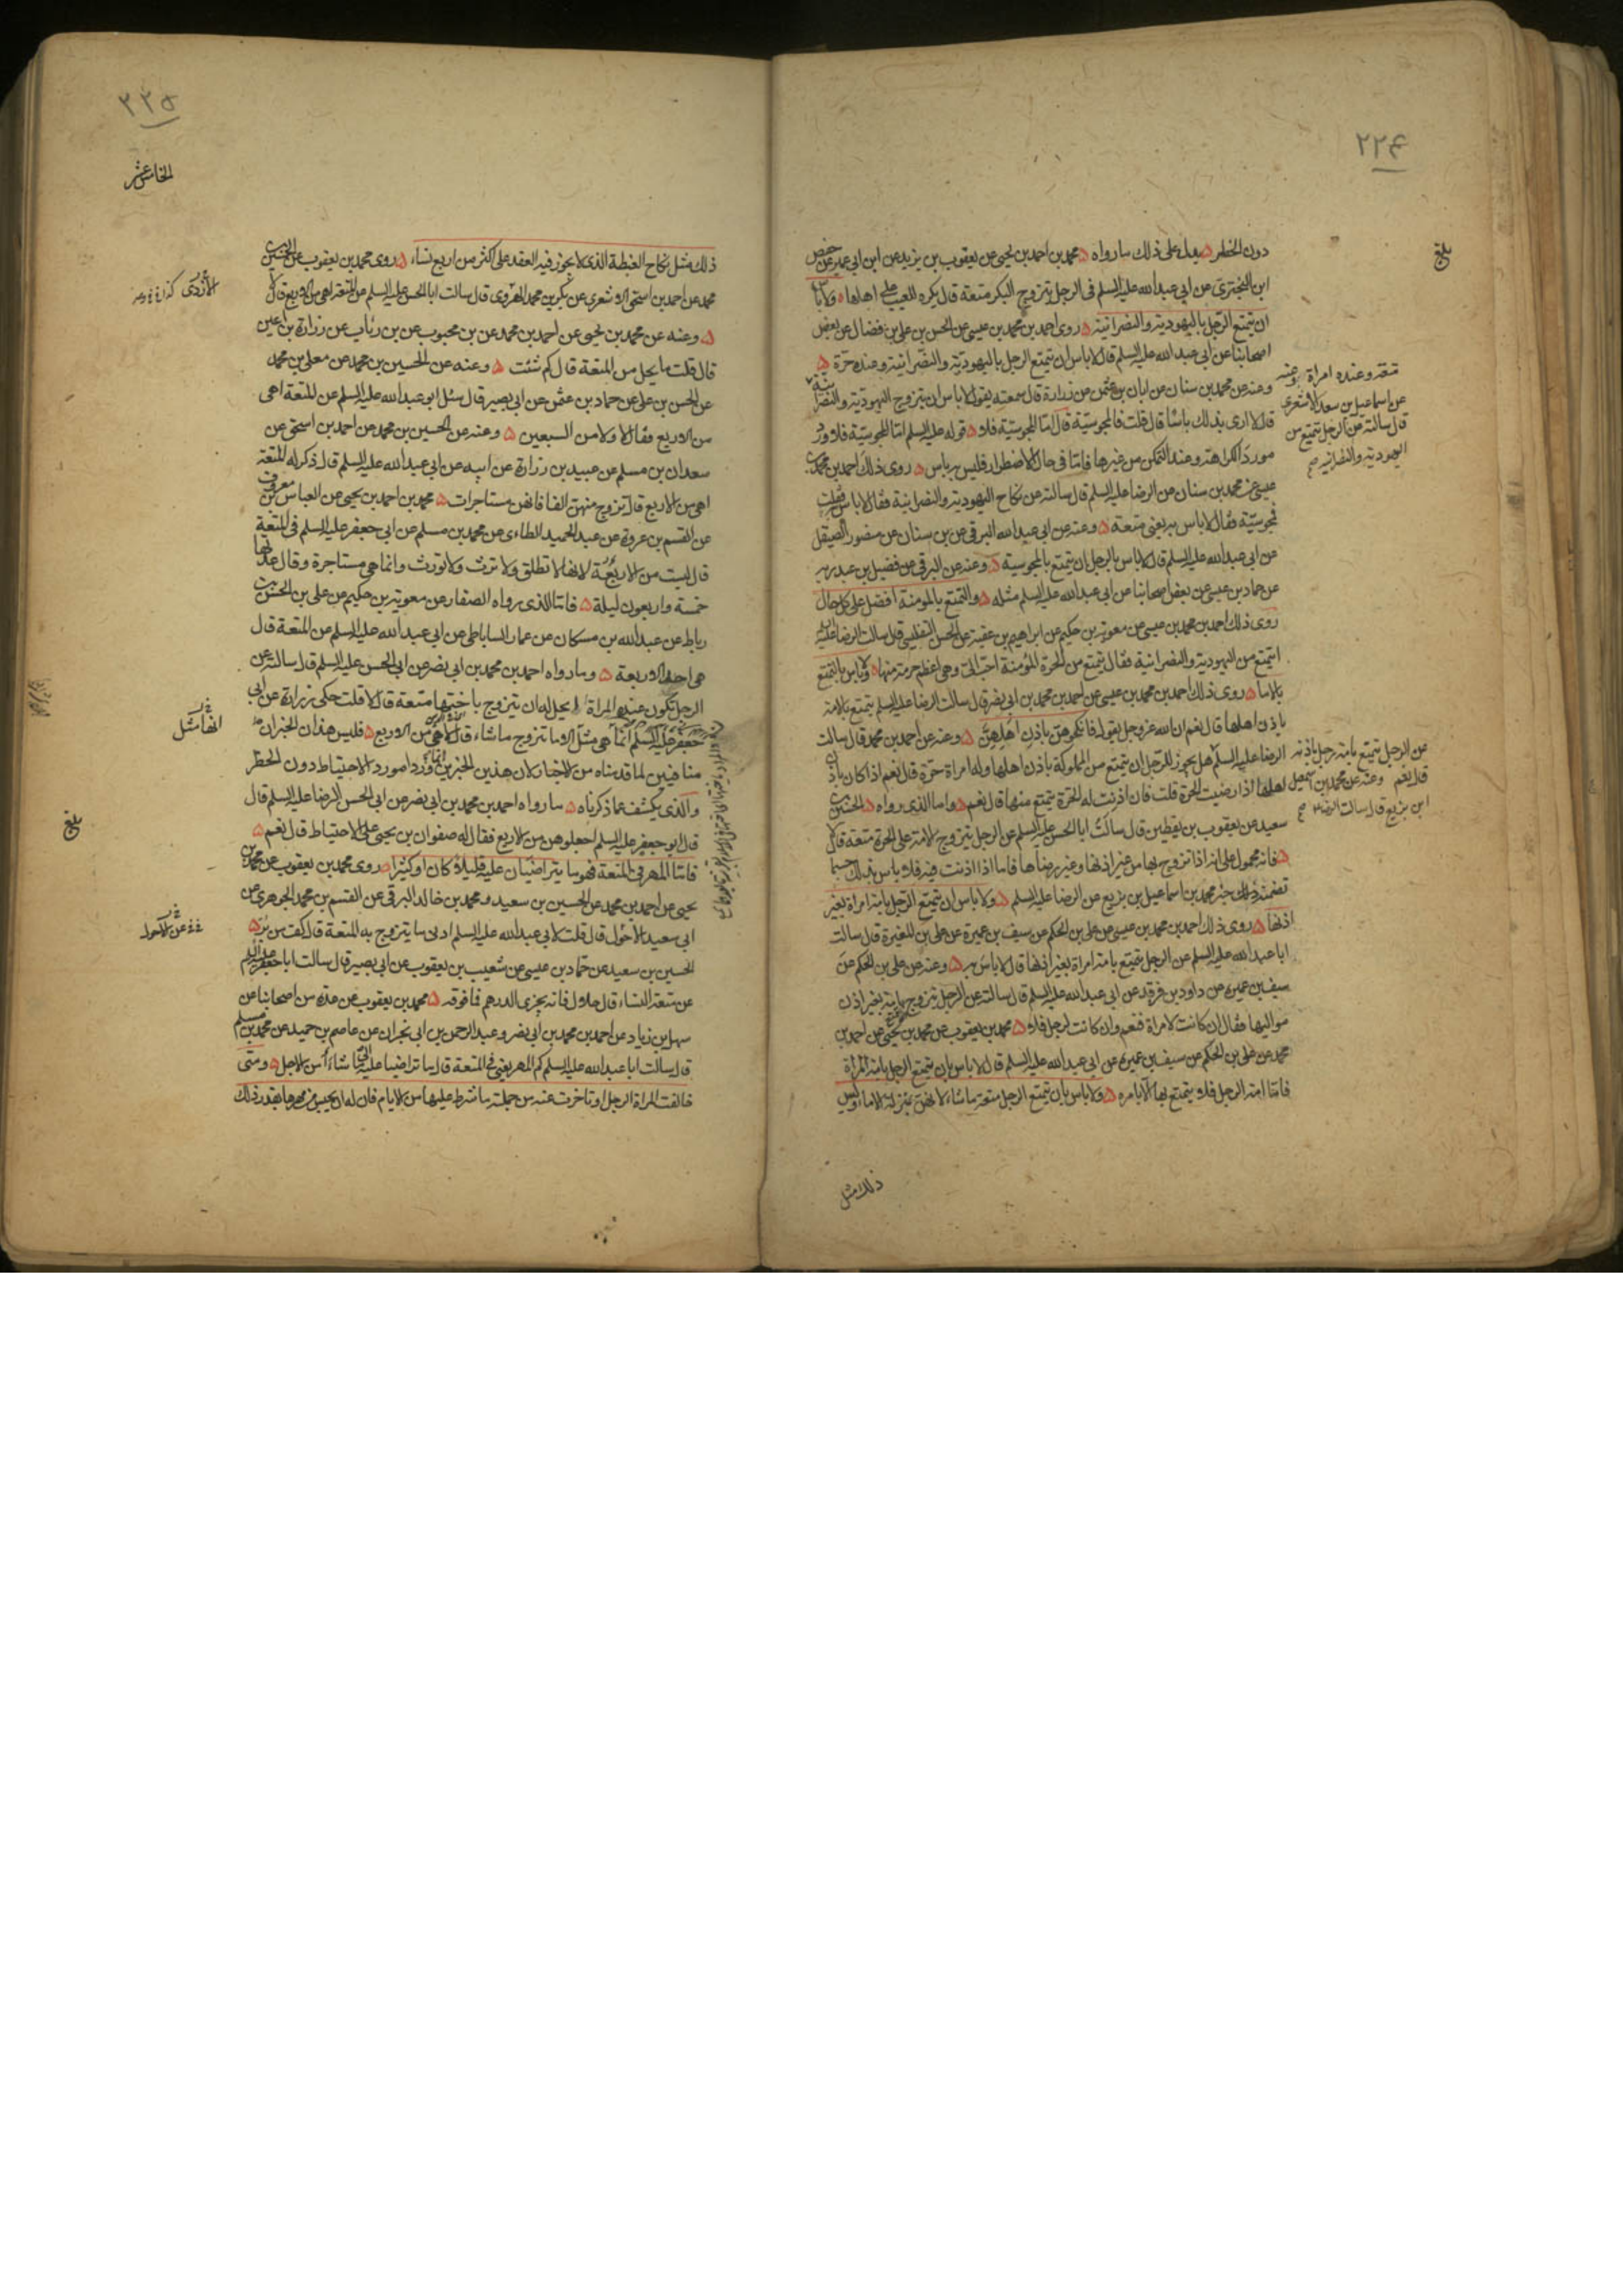 ٢٢٤
بلغ
دون الحظر يدل على ذلك ما رواه محمد بن احمد بن يحيى عن يعقوب بن يزيد عن ابن ابي عمير عن حفص
ابن البختري عن ابي عبد الله عليه السلم في الرجل يتزوج البكر متعة قال يكره للعيب على اهلها ولا باس
ان يتمتع الرجل باليهودية والنصرانية روى احمد بن محمد بن عيسى عن الحسن بن علي بن فضال عن بعض
اصحابنا عن ابي عبد الله عليه السلم قال لا باس ان يتمتع الرجل باليهودية والنصرانية وعنده حرة
وعنه عن محمد بن سنان عن ابان بن عثمن عن زرارة قال سمعته يقول لا باس ان يتزوج اليهودية والنصرانية
متعة وعنده امراة وعنه
عن اسماعيل بن سعد الاشعري
قال سالته عن الرجل يتمتع من
اليهودية والنصرانية صح
قال لا ارى بذلك باسا قال قلت فالمجوسية قال اما المجوسية فلا قوله عليه السلم اما المجوسية فلا ورد
مورد الكراهة وعند التمكن من غيرها فاما في حال الاضطرار فليس به باس روى ذلك احمد بن محمد بن
عيسى عن محمد بن سنان عن الرضا عليه السلم قال سالته عن نكاح اليهودية والنصرانية فقال لا باس فقلت
فمجوسية فقال لا باس به يعني متعة وعنه عن ابي عبد الله البرقي عن بن سنان عن منصور الصيقل
عن ابي عبد الله عليه السلم قال لا باس بالرجل ان يتمتع بالمجوسية وعنه عن البرقي عن فضيل بن عبد ربه
عن حماد بن عيسى عن بعض اصحابنا عن ابي عبد الله عليه السلم مثله والتمتع بالمومنة افضل على كل حال
روى ذلك احمد بن محمد بن عيسى عن معوية بن حكيم عن ابراهيم بن عقبة عن الحسن التفليسي قال سالت الرضا عليه السلم
ايتمتع من اليهودية والنصرانية فقال يتمتع من الحرة المؤمنة احب الي وهي اعظم حرمة منها ولا باس بالتمتع
بالاما روى ذلك احمد بن محمد بن عيسى عن احمد بن محمد بن ابي نصر قال سالت الرضا عليه السلم يتمتع بالامة
باذن اهلها قال نعم ان الله عز وجل يقول فانكحوهن باذن اهلهن وعنه عن احمد بن محمد قال سالت
الرضا عليه السلم هل يجوز للرجل ان يتمتع من المملوكة باذن اهلها وله امراة حرة قال نعم اذا كان باذن
اهلها اذا رضيت الحرة قلت فان اذنت له الحرة يتمتع منها قال نعم واما الذي رواه الحسين بن
عن الرجل يتمتع بامة رجل باذنه
قال نعم وعنه عن محمد بن اسمعيل
ابن بزيع قال سالت الرضا ع صح
سعيد عن يعقوب بن يقطين قال سالت ابا الحسن عليه السلم عن الرجل يتزوج الامة على الحرة متعة قال لا
فانه محمول على انه اذا تزوج بها من غير اذنها وغير رضاها فاما اذا اذنت فيه فلا باس بذلك حسبما
تضمنه ذلك خبر محمد بن اسماعيل بن بزيع عن الرضا عليه السلم ولا باس ان يتمتع الرجل بامة امراة بغير
اذنها روى ذلك احمد بن محمد بن عيسى عن علي بن الحكم عن سيف بن عميرة عن علي بن المغيرة قال سالت
ابا عبد الله عليه السلم عن الرجل يتمتع بامة امراة بغير اذنها قال لا باس به وعنه عن علي بن الحكم عن
سيف بن عميرة عن داود بن فرقد عن ابي عبد الله عليه السلم قال سالته عن الرجل يتزوج بامة بغير اذن
مواليها فقال ان كانت لامراة فنعم وان كانت لرجل فلا محمد بن يعقوب عن محمد بن يحيى عن احمد بن
محمد عن علي بن الحكم عن سيف بن عميرة عن ابي عبد الله عليه السلم قال لا باس بان يتمتع الرجل بامة المراة
فاما امة الرجل فلا يتمتع بها الا بامره ولا باس بان يتمتع الرجل متعة ما شاء لانهن بمنزلة الاماء وليس
ذلك مثل
٢٢٥
الخامس عشر
ذلك مثل نكاح الغبطة الذي لا يجوز فيه العقد على اكثر من اربع نساء روى محمد بن يعقوب عن الحسين بن
محمد عن احمد بن اسحق الاشعري عن بكر بن محمد قال سالت ابا الحسن عليه السلم عن المتعة اهي من الاربع قال لا
الازدي
وعنه عن محمد بن يحيى عن احمد بن محمد عن بن محبوب عن بن رئاب عن زرارة بن اعين
قال قلت ما يحل من المتعة قال كم شئت وعنه عن الحسين بن محمد عن معلى بن محمد
عن الحسن بن علي عن حماد بن عثمن عن ابي بصير قال سئل ابو عبد الله عليه السلم عن المتعة اهي
من الاربع فقال لا ولا من السبعين وعنه عن الحسين بن محمد عن احمد بن اسحق عن
سعدان بن مسلم عن عبيد بن زرارة عن ابيه عن ابي عبد الله عليه السلم قال ذكر له المتعة
اهي من الاربع قال تزوج منهن الفا فانهن مستاجرات محمد بن احمد بن يحيى عن العباس بن معروف
عن القسم بن عروة عن عبد الحميد الطاءى عن محمد بن مسلم عن ابي جعفر عليه السلم في المتعة
قال ليست من الاربعة لانها لا تطلق ولا ترث ولا تورث وانما هي مستاجرة وقال عدتها
خمسة واربعون ليلة فاما الذي رواه الصفار عن معوية بن حكيم عن علي بن الحسن بن
رباط عن عبد الله بن مسكان عن عمار الساباطي عن ابي عبد الله عليه السلم عن المتعة قال
هي احد الاربعة وما رواه احمد بن محمد بن ابي نصر عن ابي الحسن عليه السلم قال سالته عن
الرجل تكون عنده المراة ايحل له ان يتزوج باختها متعة قال لا قلت حكى زرارة عن ابي
جعفر عليه السلم انما هي مثل الاما تتزوج ما شاء قال لا هي من الاربع فليس هذان الخبران
انها مثل
منافيين لما قدمناه من الاخبار لان هذين الخبرين انما وردا مورد الاحتياط دون الحظر
والذي يكشف عما ذكرناه ما رواه احمد بن محمد بن ابي نصر عن ابي الحسن الرضا عليه السلم قال
قال ابو جعفر عليه السلم اجعلوهن من الاربع فقال له صفوان بن يحيى على الاحتياط قال نعم
بلغ
فاما المهر في المتعة فهو ما يتراضيان عليه قليلا كان او كثيرا روى محمد بن يعقوب عن محمد بن
يحيى عن احمد بن محمد عن الحسين بن سعيد و محمد بن خالد البرقي عن القسم بن محمد الجوهري عن
ابي سعيد الاحول قال قلت لابي عبد الله عليه السلم ادنى ما يتزوج به المتعة قال كف من بر
عن الاحول
الحسين بن سعيد عن حماد بن عيسى عن شعيب بن يعقوب عن ابي بصير قال سالت ابا جعفر عليه السلم
عن متعة النساء قال حلال فانه يجزى الدرهم فما فوقه محمد بن يعقوب عن عدة من اصحابنا عن
سهل بن زياد عن احمد بن محمد بن ابي نصر وعبد الرحمن بن ابي نجران عن عاصم بن حميد عن محمد بن مسلم
قال سالت ابا عبد الله عليه السلم كم المهر يعني في المتعة قال ما تراضيا عليه الى ما شاءا من الاجل ومتى
خالفت المراة الرجل او تاخرت عنه من جملة ما شرط عليها من الايام فان له ان يحبس من مهرها بقدر ذلك